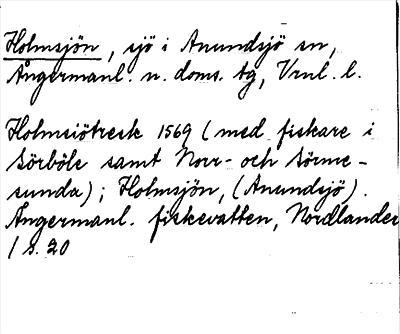 Holmsjön, sjö i Anundsjö sn,
Ångermanl. n. doms. tg, Vrnl. l.
Holmsiötresk 1569 (med fiskare i
Sörböle samt Norr- och Sörme-
sunda); Holmsjön, (Anundsjö).
Ångermanl. fiskevatten, Nordlander
/ s. 20